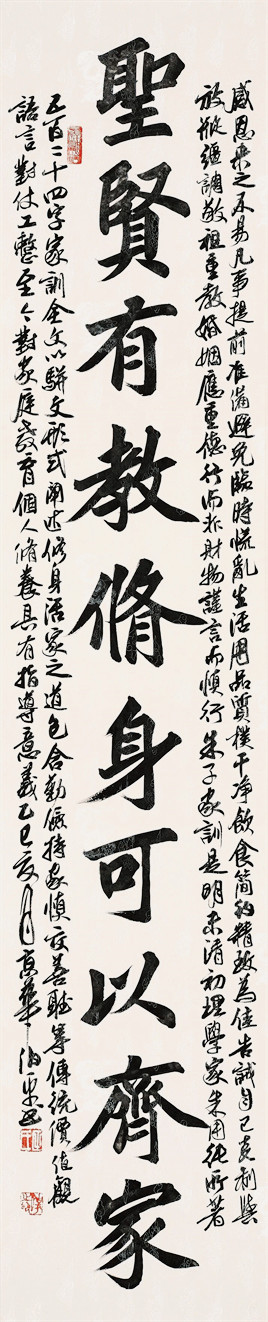 感恩来之不易凡事提前准備避免臨時慌亂生活用品質樸干净飲食簡約精致為佳告誡自己克制與
放縱彊調敬祖重教婚姻應重德行而非財物謹言而慎行朱子家訓是明末清初理學家朱用純所著
聖賢有教脩身可以齊家
五百二十四字家訓全文以駢文形式阐述修身治家之道包含勤儉持家慎交善鄰等傳統價值觀
語言對仗工整至今對家庭教育個人脩養具有指導意義乙巳夏月京華